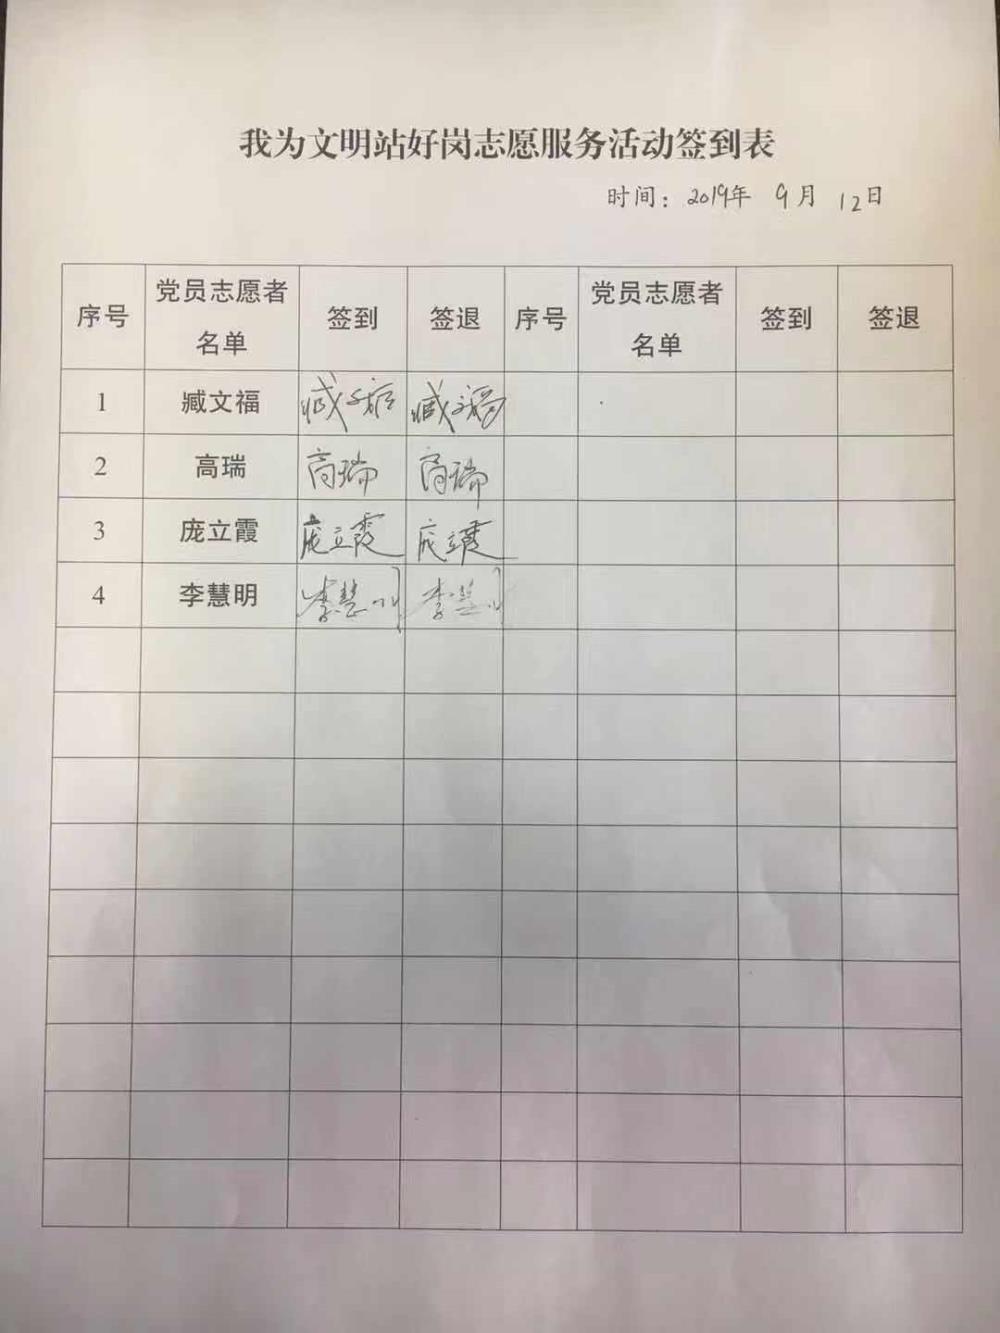 我为文明站好岗志愿服务活动签到表
时间：2019年 9月 12日
序号 党员志愿者名单 签到 签退 序号 党员志愿者名单 签到 签退
1 臧文福 臧文福 臧文福
2 高瑞 高瑞 高瑞
3 庞立霞 庞立霞 庞立霞
4 李慧明 李慧明 李慧明